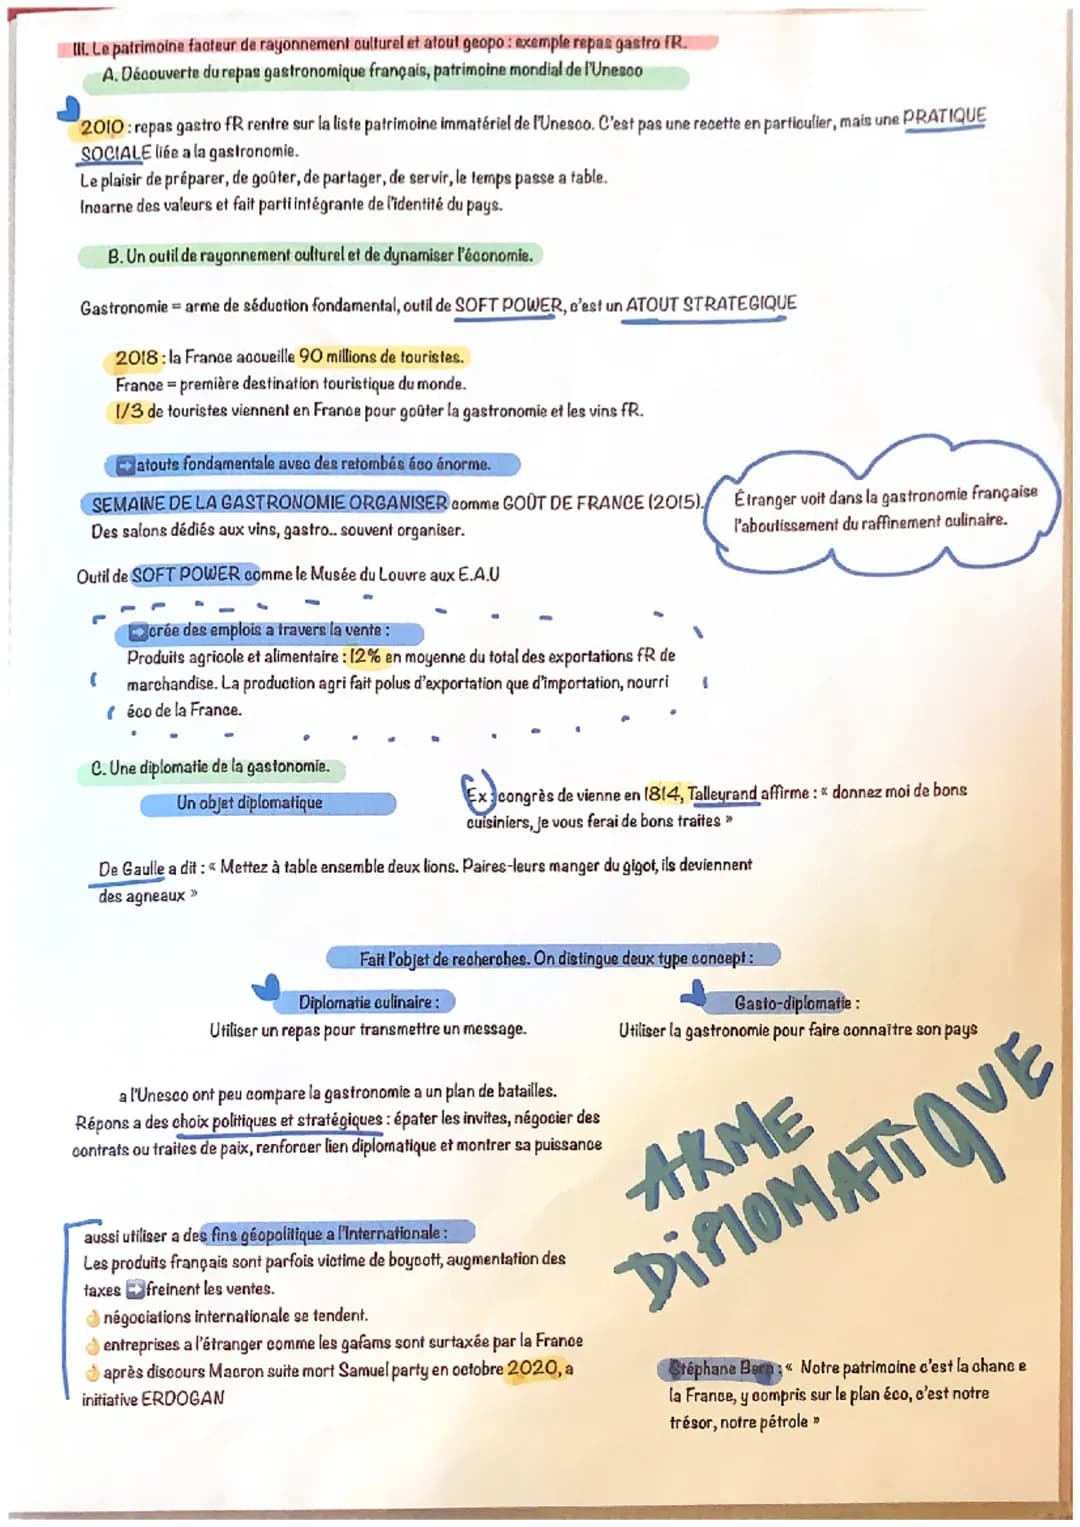 III. Le patrimoine facteur de rayonnement culturel et atout geopo : exemple repas gastro FR.
A. Découverte du repas gastronomique français, patrimoine mondial de l'Unesco
2010 : repas gastro fR rentre sur la liste patrimoine immatériel de l'Unesco. C'est pas une recette en particulier, mais une PRATIQUE
SOCIALE liée a la gastronomie.
Le plaisir de préparer, de goûter, de partager, de servir, le temps passe a table.
Incarne des valeurs et fait parti intégrante de l'identité du pays.
B. Un outil de rayonnement culturel et de dynamiser l'économie.
Gastronomie = arme de séduction fondamental, outil de SOFT POWER, c'est un ATOUT STRATEGIQUE
2018 : la France accueille 90 millions de touristes.
France = première destination touristique du monde.
1/3 de touristes viennent en France pour goûter la gastronomie et les vins fR.
➡atouts fondamentale avec des retombés éco énorme.
SEMAINE DE LA GASTRONOMIE ORGANISER comme GOÛT DE FRANCE (2015).
Des salons dédiés aux vins, gastro.. souvent organiser.
Étranger voit dans la gastronomie française
l'aboutissement du raffinement culinaire.
Outil de SOFT POWER comme le Musée du Louvre aux E.A.U
➡crée des emplois a travers la vente :
Produits agricole et alimentaire : 12% en moyenne du total des exportations fR de
marchandise. La production agri fait polus d'exportation que d'importation, nourri
éco de la France.
C. Une diplomatie de la gastonomie.
Un objet diplomatique
Ex : congrès de vienne en 1814, Talleyrand affirme : « donnez moi de bons
cuisiniers, je vous ferai de bons traites »
De Gaulle a dit : « Mettez à table ensemble deux lions. Paires-leurs manger du gigot, ils deviennent
des agneaux »
Fait l'objet de recherches. On distingue deux type concept :
Diplomatie culinaire :
Utiliser un repas pour transmettre un message.
Gasto-diplomatie :
Utiliser la gastronomie pour faire connaître son pays
a l'Unesco ont peu compare la gastronomie a un plan de batailles.
Répons a des choix politiques et stratégiques : épater les invites, négocier des
contrats ou traites de paix, renforcer lien diplomatique et montrer sa puissance
ARME
DIPLOMATIQUE
aussi utiliser a des fins géopolitique a l'Internationale :
Les produits français sont parfois victime de boycott, augmentation des
taxes ➡freinent les ventes.
👌négociations internationale se tendent.
👌entreprises a l'étranger comme les gafams sont surtaxée par la France
👌après discours Macron suite mort Samuel party en octobre 2020, a
initiative ERDOGAN
Stéphane Bern : « Notre patrimoine c'est la chanc e
la France, y compris sur le plan éco, c'est notre
trésor, notre pétrole »